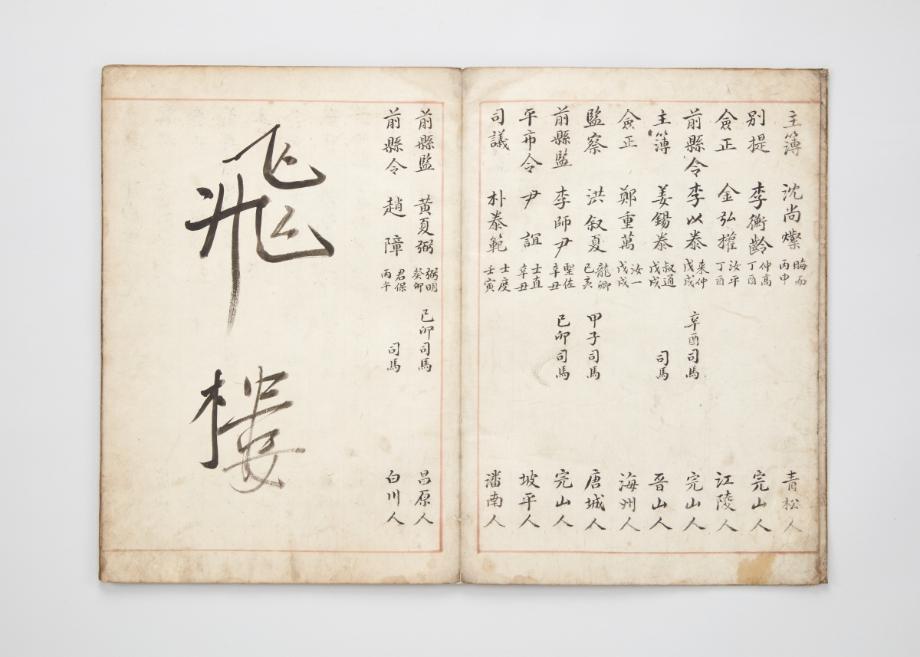 主簿 沈尚燦 晦而 丙申 青松人
別提 李衡齡 仲高 丁酉 完山人
僉正 金弘權 汝平 丁酉 江陵人
前縣令 李以泰 來仲 戊戌 辛酉司馬 完山人
主簿 姜錫泰 叔通 戊戌 司馬 晋山人
僉正 鄭重萬 汝一 戊戌 海州人
監察 洪叙夏 龍卿 己亥 甲子司馬 唐城人
前縣監 李師尹 聖佐 辛丑 己卯司馬 完山人
平市令 尹誼 士直 辛丑 坡平人
司議 朴泰範 士度 壬寅 潘南人
前縣監 黃夏弼 弼明 癸卯 己卯司馬 昌原人
前縣令 趙障 君保 丙午 司馬 白川人
飛樓